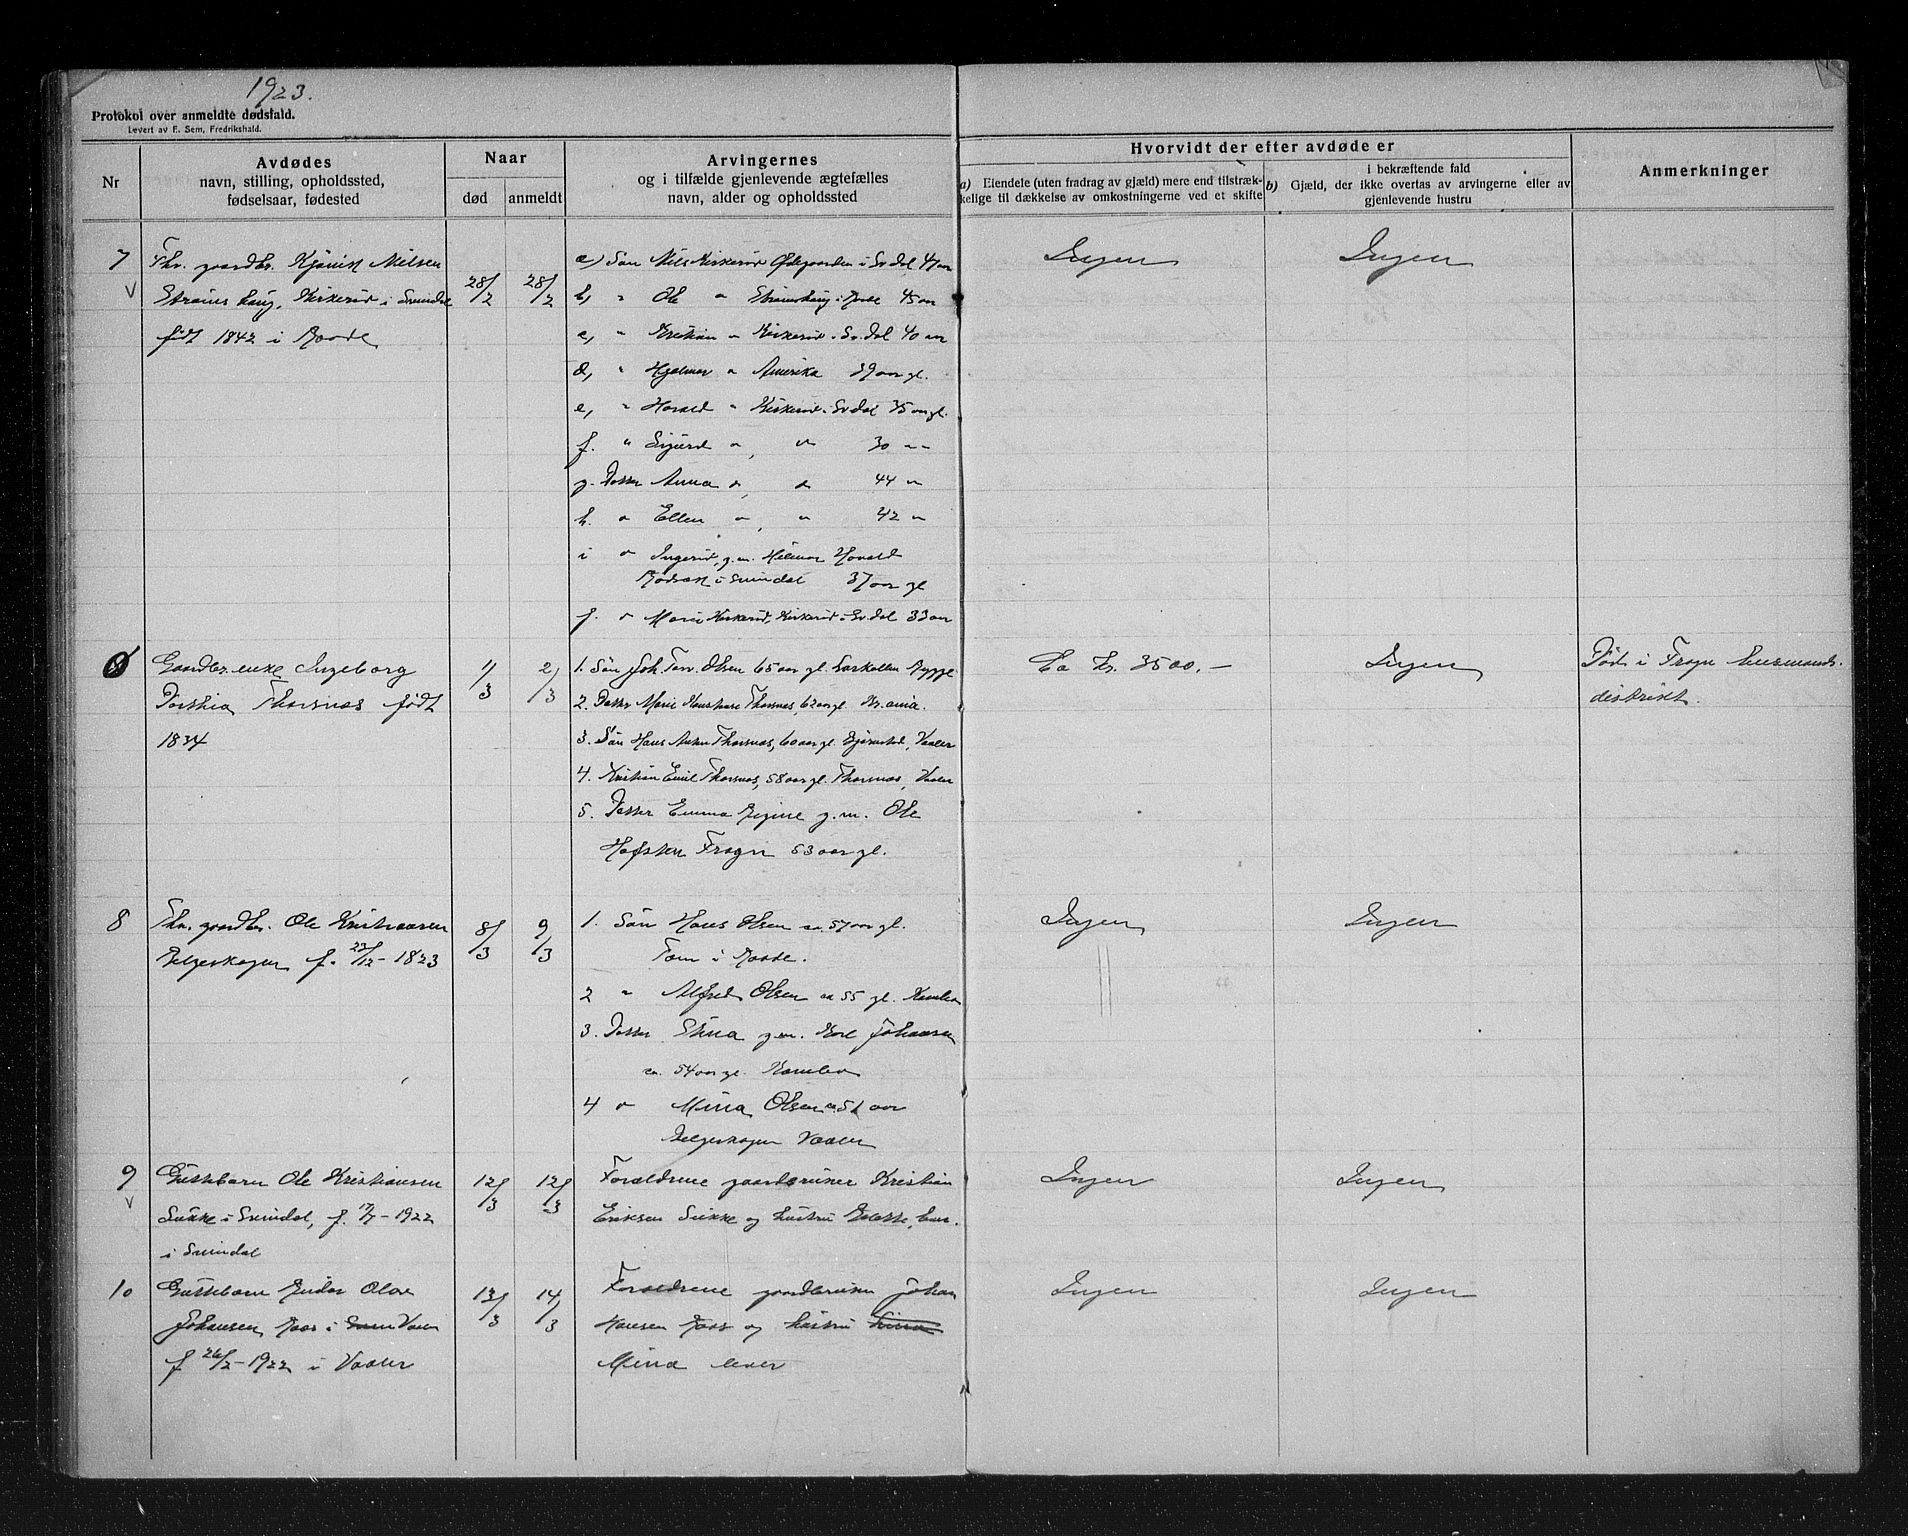 1923.
Protokol over anmeldte dødsfald.
Levert av E. Sem, Fredrikshald.
Nr
Avdødes
navn, stilling, opholdssted,
fødselsaar, fødested
Naar
død
anmeldt
Arvingernes
og i tilfælde gjenlevende ægtefælles
navn, alder og opholdssted
Hvorvidt der efter avdøde er
a) Eiendele (uten fradrag av gjæld) mere end tilstræk-
kelige til dækkelse av omkostningerne ved et skifte
i bekræftende fald
b) Gjæld, der ikke overtas av arvingerne eller av
gjenlevende hustru
Anmerkninger
7
Fhv. gaardbr. Nilsen
Kirkerud i Svindal
født 1842 i Raade
28/2
28/2
a) Søn Nils Kirkerud Ødegaarden i Sv.dal 47 aar
b, " Ole " i Raade 45 aar
c, " Kristian " Kirkerud i Sv.dal 40 aar
d, " Hjalmar " Amerika 39 aar gl.
e, " Harald " Kirkerud i Sv.dal 35 aar gl.
f. " Sigurd " " 30 "
g. Datter Anna " " 44 "
h. " Ellen " " 42 "
i " Ingerid, g.m. Hilmar Harald
i Svindal 37 aar gl
j. " Marie Kirkerud, Kirkerud i Sv.dal 33 aar
Ingen
Ingen
Ø
Gaardbr.enke Ingeborg
Dorthia Thorsnas født
1834
1/3
2/3
1. Søn Joh. Olsen 65 aar gl. Larkollen Rygge
2. Datter Marie Thorsnas, 62 aar gl. Kr.ania.
3. Søn Hans Anton Thorsnas, 60 aar gl. Vaaler
4. Kristian Emil Thorsnas, 58 aar gl. Thorsnas, Vaaler
5. Datter Emma Regine g.m. Ole
Frogn 53 aar gl.
Ca kr. 3500.-
Ingen
Død i Frogn lensmands-
distrikt.
8
Fhv. gaardbr. Ole Kristiansen
f. /12 - 1823
8/3
9/3
1. Søn Hans Olsen ca. 57 aar gl.
Tom i Raade.
2 " Alfred Olsen ca 55 gl.
3. Datter Stina g.m. Karl Johansen
ca. 54 aar gl.
4 " Mina Olsen ca 51 aar
Vaaler
Ingen
Ingen
9
Guttebarn Ole Kristiansen
Sukke i Svindal, f. 17/7 - 1922
i Svindal
12/3
12/3
Forældrene gaardbruker Kristian
Eriksen Sukke og hustru
Ingen
Ingen
10
Guttebarn Reidar Olav
Johansen, Roos i Vaaler
f 26/2 - 1922 i Vaaler
13/3
14/3
Forældrene gaardbruker Johan
Hansen Roos og hustru
Mina lever
Ingen
Ingen